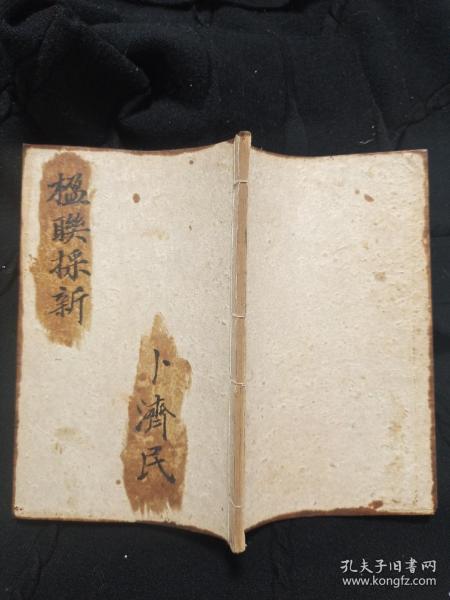 楹聯採新
卜濟民
孔夫子旧书网
www.kongfz.com